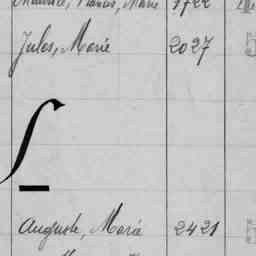 Marie 1722
Jules, Marie 2027
L
Auguste, Marie 2421